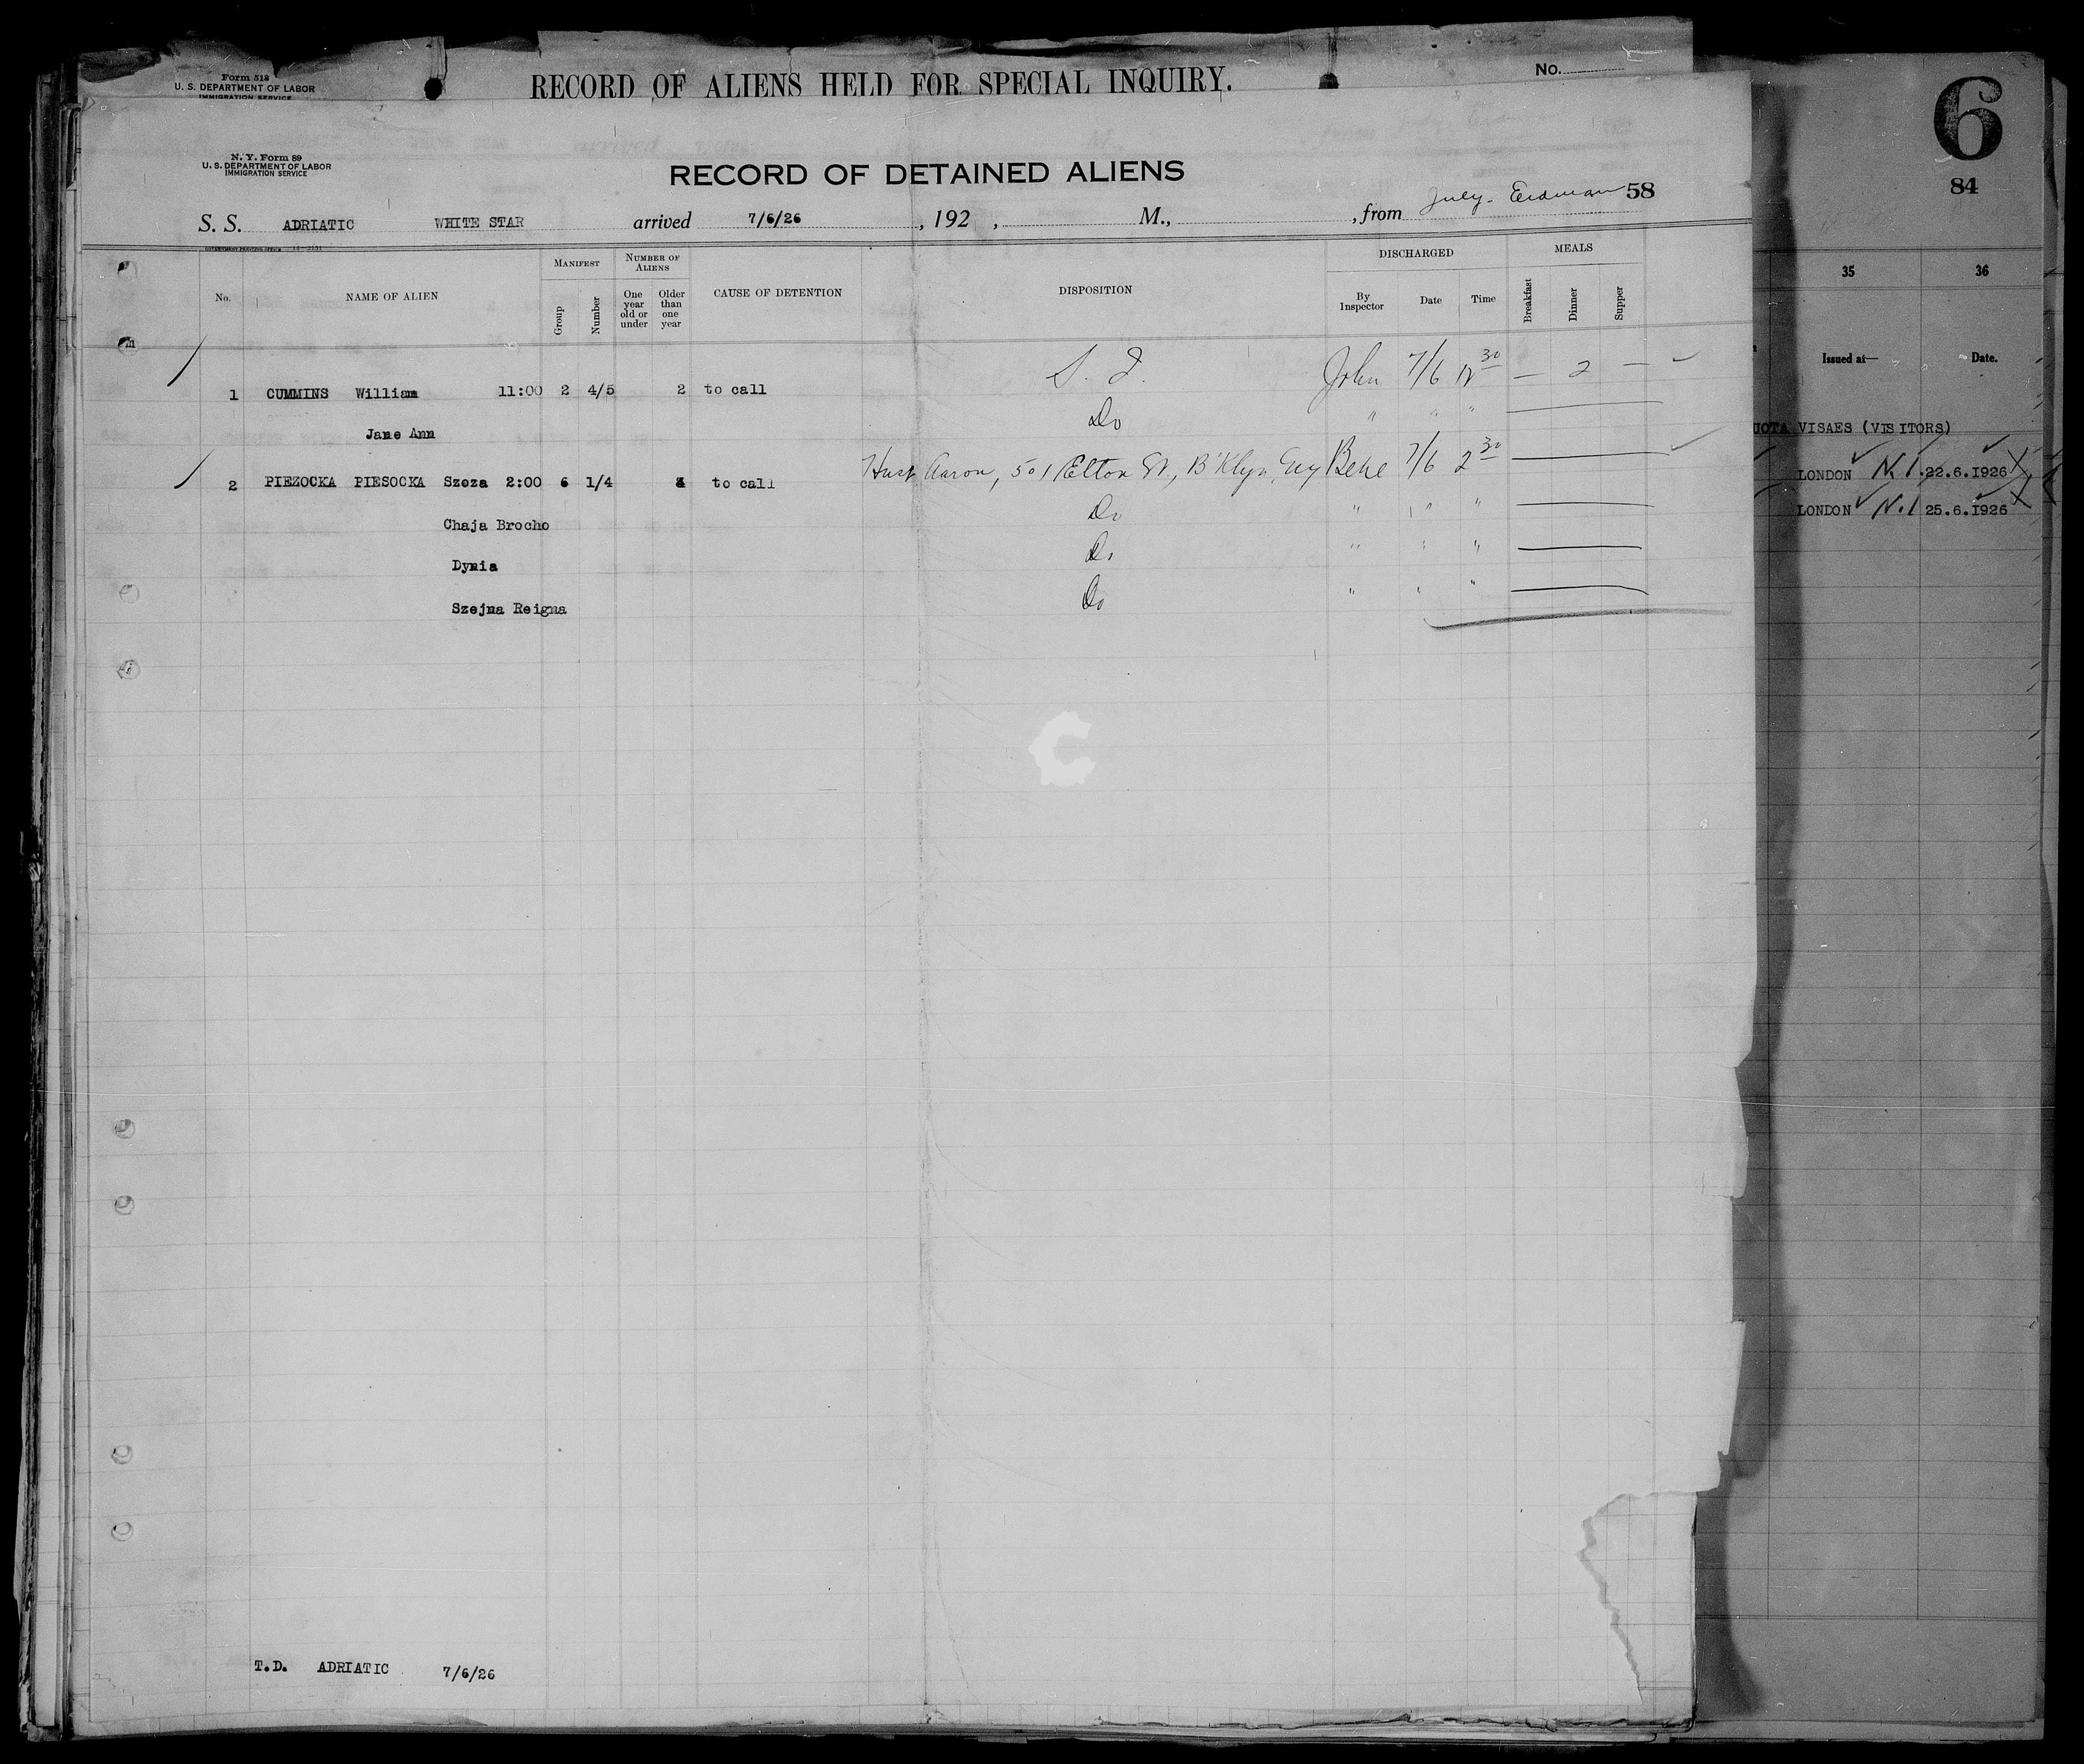 Form 518
U. S. DEPARTMENT OF LABOR
IMMIGRATION SERVICE
RECORD OF ALIENS HELD FOR SPECIAL INQUIRY.
No.
6
84
N. Y. Form 89
U. S. DEPARTMENT OF LABOR
IMMIGRATION SERVICE
RECORD OF DETAINED ALIENS
58
S. S. ADRIATIC WHITE STAR arrived 7/6/26 , 192 , M., , from July. Erdman
No. NAME OF ALIEN MANIFEST Group Number NUMBER OF ALIENS One year old or under Older than one year CAUSE OF DETENTION DISPOSITION DISCHARGED By Inspector Date Time MEALS Breakfast Dinner Supper
35 36
Issued at— Date.
1 CUMMINS William 11:00 2 4/5 2 to call S. I. John 7/6 12 30 — 2 —
Jane Ann Do " " "
VISAES (VISITORS)
2 PIEZOCKA PIESOCKA Szeza 2:00 6 1/4 4 to call Husb Aaron, 501 Elton St., B'Klyn, 7/6 2 30
LONDON N.1. 22.6.1926
Chaja Brocho Do " " "
LONDON N.1 25.6.1926
Dynia Do " " "
Szejna Reigna Do " " "
T.D. ADRIATIC 7/6/26